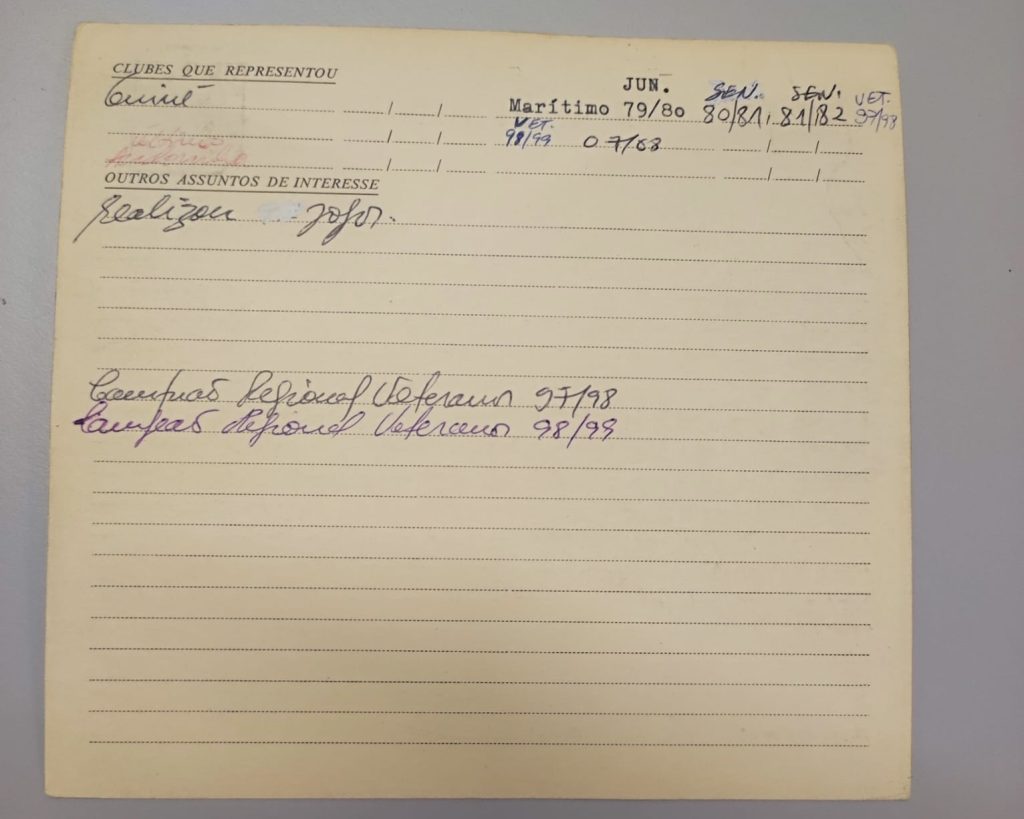 CLUBES QUE REPRESENTOU
JUN. SEN. SEN. VET.
Guiné Marítimo 79/80 80/81, 81/82 97/98
VET.
98/99 07/08
OUTROS ASSUNTOS DE INTERESSE
Realizou jogos.
Campeão Regional Veteranos 97/98
Campeão Regional Veteranos 98/99